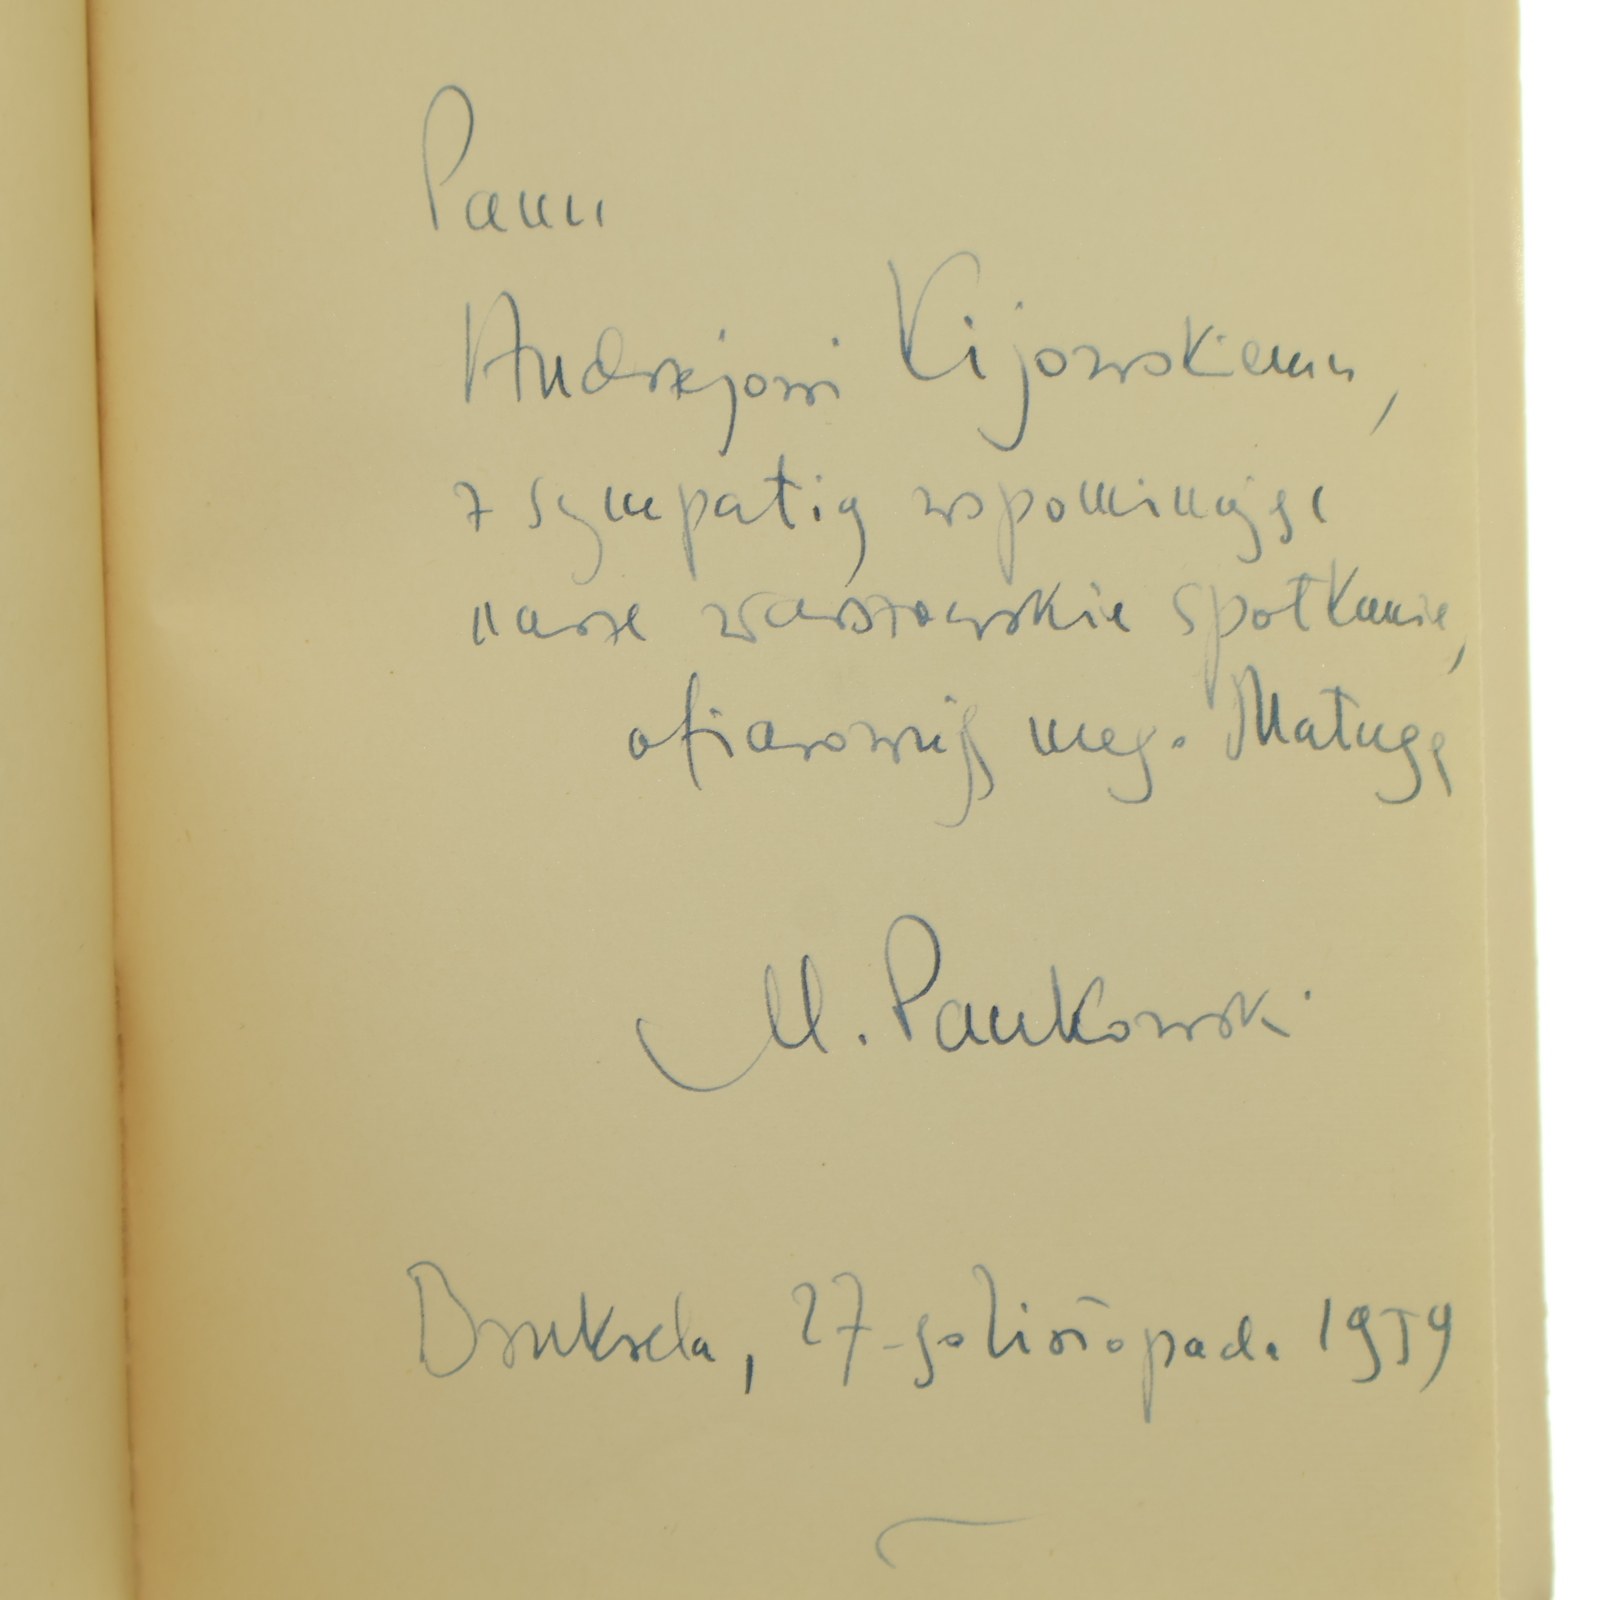 Panu
Andrzejowi Kijowskiemu,
z sympatią wspominając
nasze warszawskie spotkanie,
ofiarowuję mego Matugę
M. Pankowski
Bruksela, 27-go listopada 1959